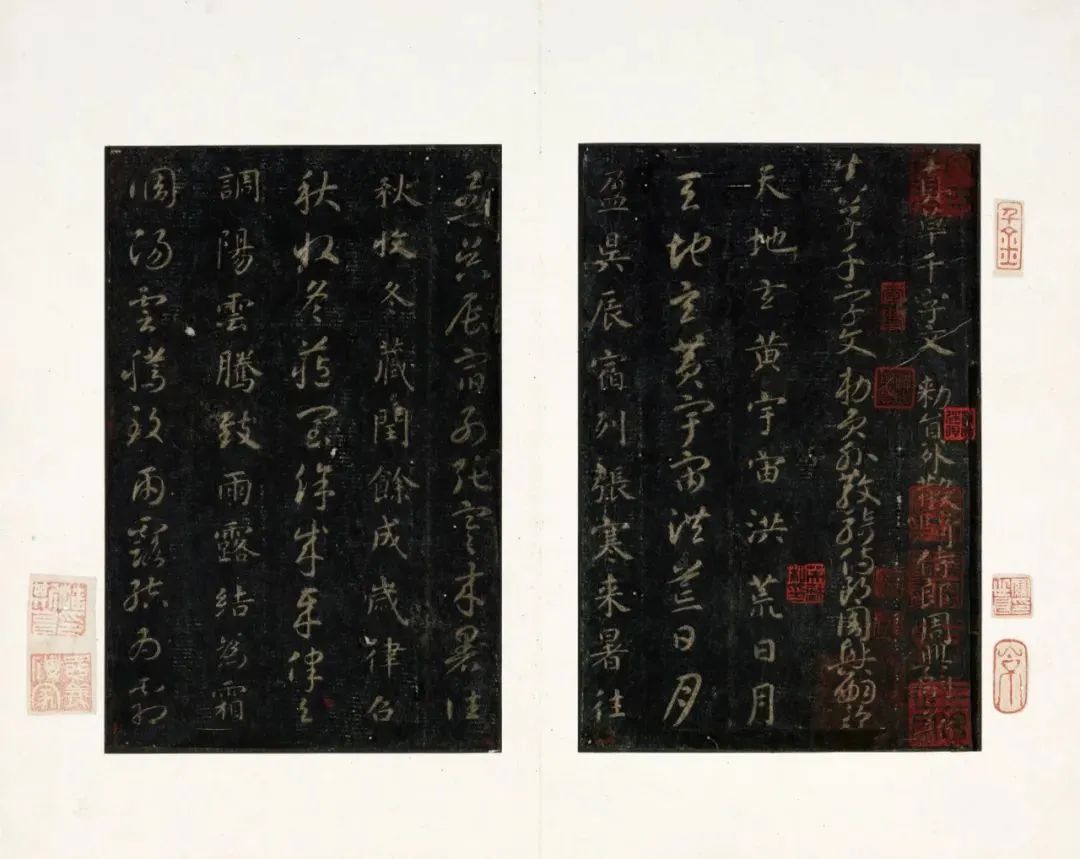 真草千字文勅員外散騎侍郎周興嗣
真草千字文勅員外散騎侍郎周興嗣
天地玄黄宇宙洪荒日月
天地玄黄宇宙洪荒日月
盈昃辰宿列張寒来暑往
盈昃辰宿列張寒来暑往
秋收冬藏閏餘成歳律召
秋收冬藏閏餘成歳律召
調陽雲騰致雨露結為霜
調陽雲騰致雨露結為霜